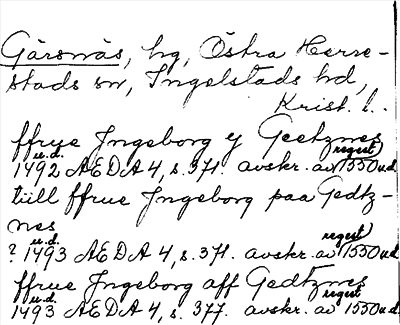 Gärsnäs, hg, Östra Herre-
stads sn, Ingelstads hd,
Krist. l.
ffrue Jngeborg y Geetznes
u.d. regest
1492 AEDA 4, s. 371. avskr. av 1550 u.d.
tiill ffrue Jngeborg paa Gedtz-
nes
u.d. regest
? 1493 AEDA 4, s. 371. avskr. av 1550 u.d.
ffrue Jngeborg aff Gedtznes
u.d. regest
1493 AEDA 4, s. 377. avskr. av 1550 u.d.